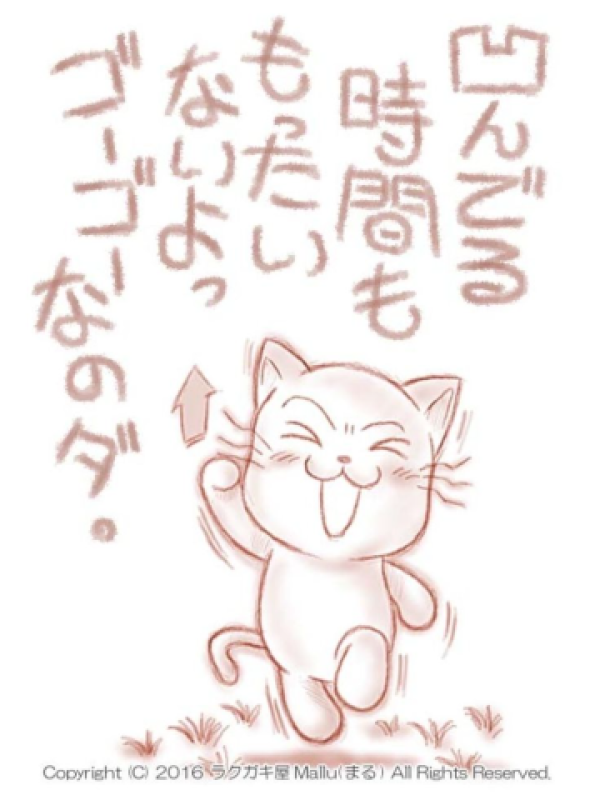 凹んでる
時間も
もったい
ないよっ
ゴーゴー
なのダ。
Copyright (C) 2016 ラクガキ屋Mallu(まる) All Rights Reserved.